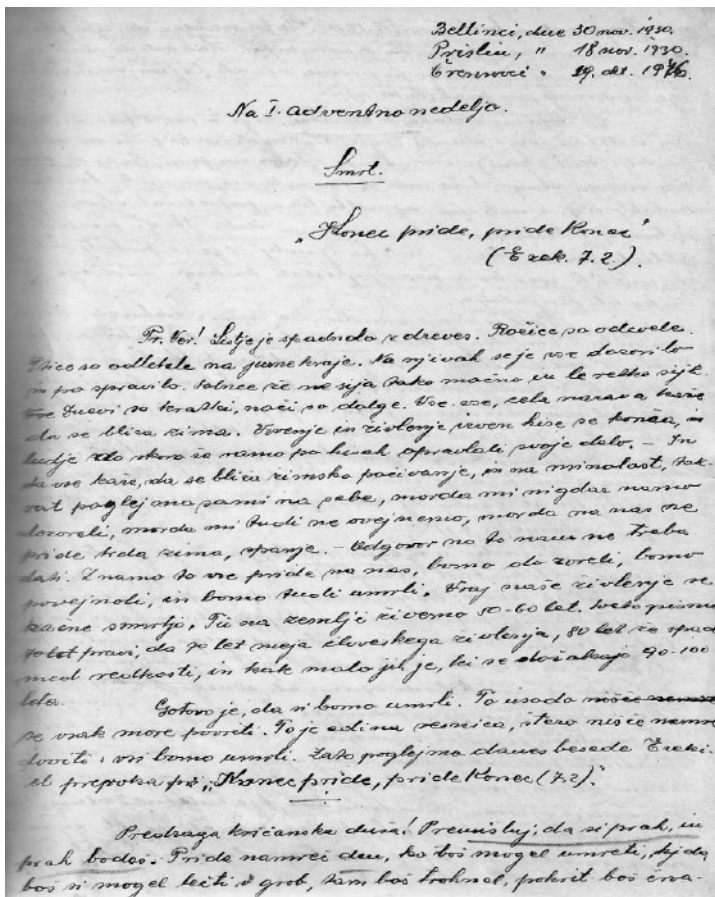 Beltinci, dne 30 nov. 1930.
Prislin, " 18 nov. 1930.
Črensovci " 29. okt. 19
Na I. adventno nedeljo.
Smrt.
"Konec pride, pride Konec"
(Ezek. 7.2.).
Pr. Ver! Listje je spadnolo z dreves. Rožice so odcvele.
Ptice so odletele na južne kraje. Na njivah se je vse dozorilo
in po spravilo. Solnce že ne sija tako močno in le redko sijé.
Dnevi so kratki, noči so dolge. Vse, vse, cela narava kaže
da se bliža zima. Vrvenje in živlenje izven hiše se konča, in
ludje skoro že samo po hišah opravlati svoje delo. – In
da vse kaže, da se bliža zimsko počivanje, in na minolost,
poglejmo sami na sebe, morda mi nigdar namo
dozoreli, morda mi tudi ne ovejnemo, morda na nas ne
pride trda zima, spanje. – Odgovor na to nam ne treba
dati. Znamo to vse pride na nas, bomo do zoreli, bomo
povejnoli, in bomo tudi umrli. Kraj naše živlenje se
začne smrtjo. Tü na zemlji živemo 50-60 let. Sveto pismo
pravi, da 70 let meja človeskega živlenja, 80 let že spada
med redkosti, in kak malo jih je, ki se dočakajo 90-100
leta.
Gotovo je, da vsi bomo umrli. To usodo nišče
se vsak more povrčti. To je edina resnica, štero nišče nemre
dvoiti: vsi bomo umrli. Zato poglejmo danes besede Ezeki-
el preroka "Konec pride, pride Konec (7.2)."
Predraga krščanska duša! Premišluj, da si prah, in
prah bodeš. Pride namreč den, ko boš mogel umreti,
boš si mogel lečti v grob, tam boš trohnel, pokrit boš črva-